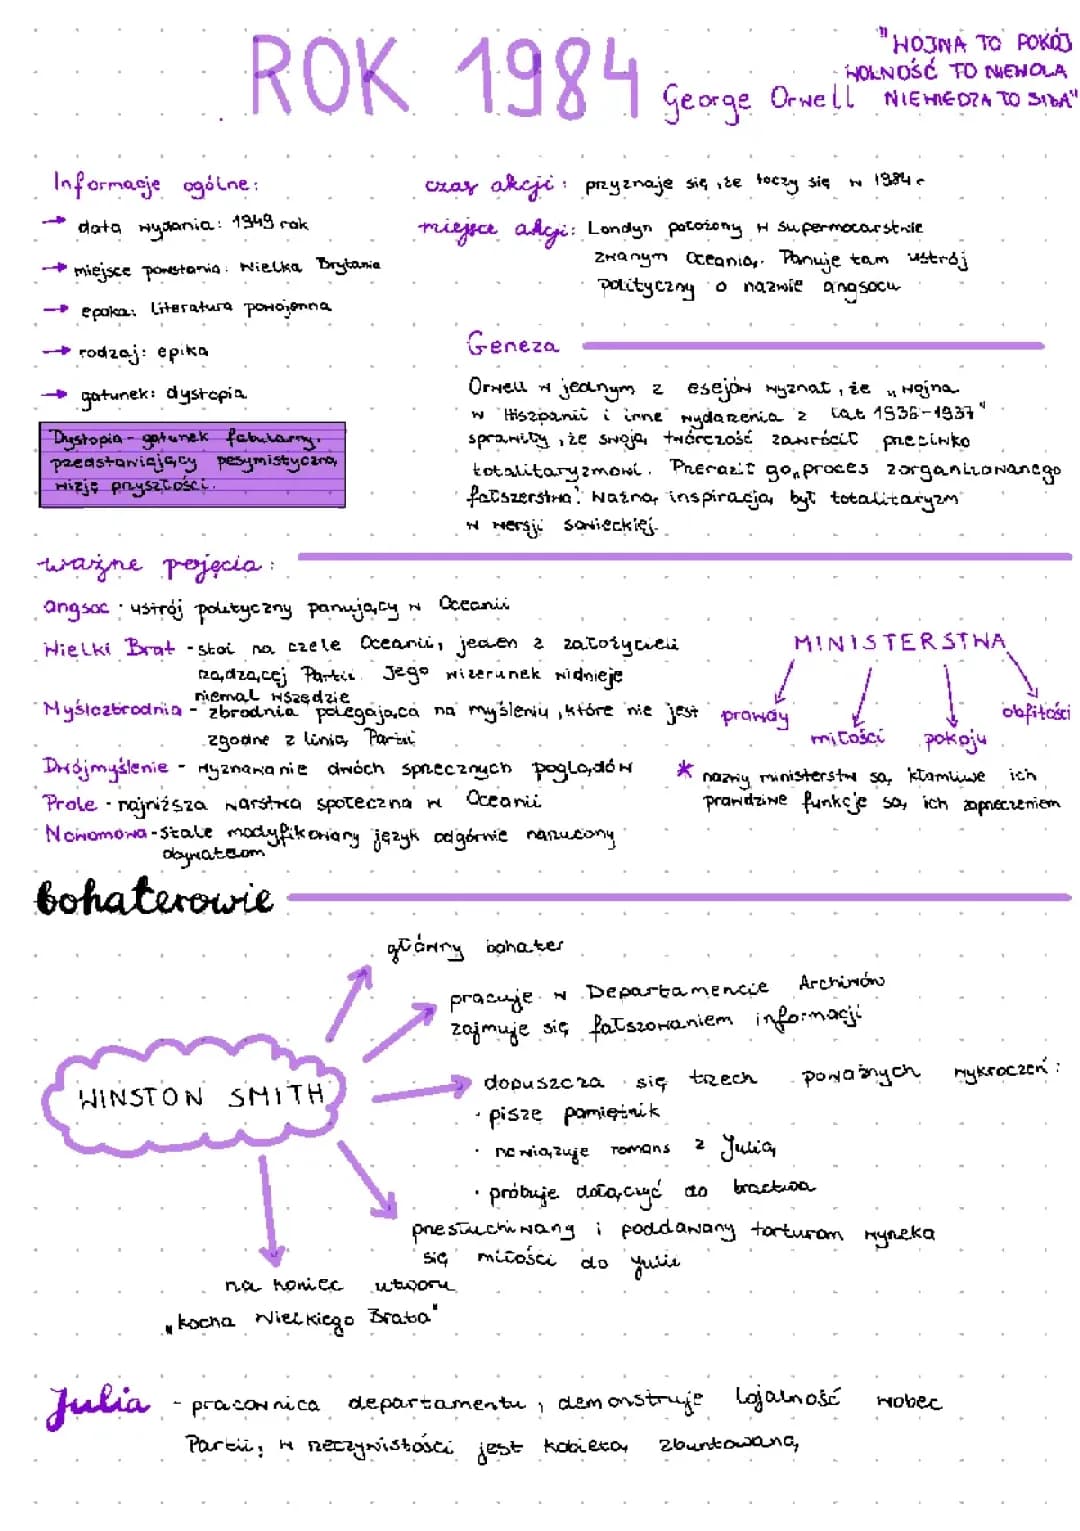 ROK 1984
George Orwell
"WOJNA TO POKÓJ
WOLNOŚĆ TO NIEWOLA
NIEWIEDZA TO SIŁA"
Informacje ogólne:
→ data wydania: 1949 rok
→ miejsce powstania: Wielka Brytania
→ epoka: literatura powojenna
→ rodzaj: epika
→ gatunek: dystopia
Dystopia - gatunek fabularny,
przedstawiający pesymistyczną
wizję przyszłości.
czas akcji: przyznaje się, że toczy się w 1984 r
miejsce akcji: Londyn położony w supermocarstwie
zwanym Oceanią. Panuje tam ustrój
polityczny o nazwie angsocu
Geneza
Orwell w jednym z esejów wyznał, że „wojna
w Hiszpanii i inne wydarzenia z lat 1936-1937"
sprawiły, że swoją twórczość zawrócił przeciwko
totalitaryzmowi. Przeraził go „proces zorganizowanego
fałszerstwa". Ważną inspiracją był totalitaryzm
w wersji sowieckiej.
ważne pojęcia:
angsoc - ustrój polityczny panujący w Oceanii
Wielki Brat - stoi na czele Oceanii, jeden z założycieli
rządzącej Partii. Jego wizerunek widnieje
niemal wszędzie
Myślozbrodnia - zbrodnia polegająca na myśleniu, które nie jest
zgodne z linią Partii
Dwójmyślenie - wyznawanie dwóch sprzecznych poglądów
Prole - najniższa warstwa społeczna w Oceanii
Nowomowa - stale modyfikowany język odgórnie narzucony
obywatelom
MINISTERSTWA
prawdy
miłości
pokoju
obfitości
* nazwy ministerstw są kłamliwe ich
prawdziwe funkcje są ich zaprzeczeniem
bohaterowie
WINSTON SMITH
główny bohater
pracuje w Departamencie Archiwów
zajmuje się fałszowaniem informacji
dopuszcza się trzech poważnych wykroczeń:
· pisze pamiętnik
· nawiązuje romans z Julią
· próbuje dołączyć do bractwa
przesłuchiwany i poddawany torturom wyrzeka
się miłości do Julii
na koniec utworu
„kocha Wielkiego Brata"
Julia - pracownica departamentu, demonstruje lojalność wobec
Partii, w rzeczywistości jest kobietą zbuntowaną